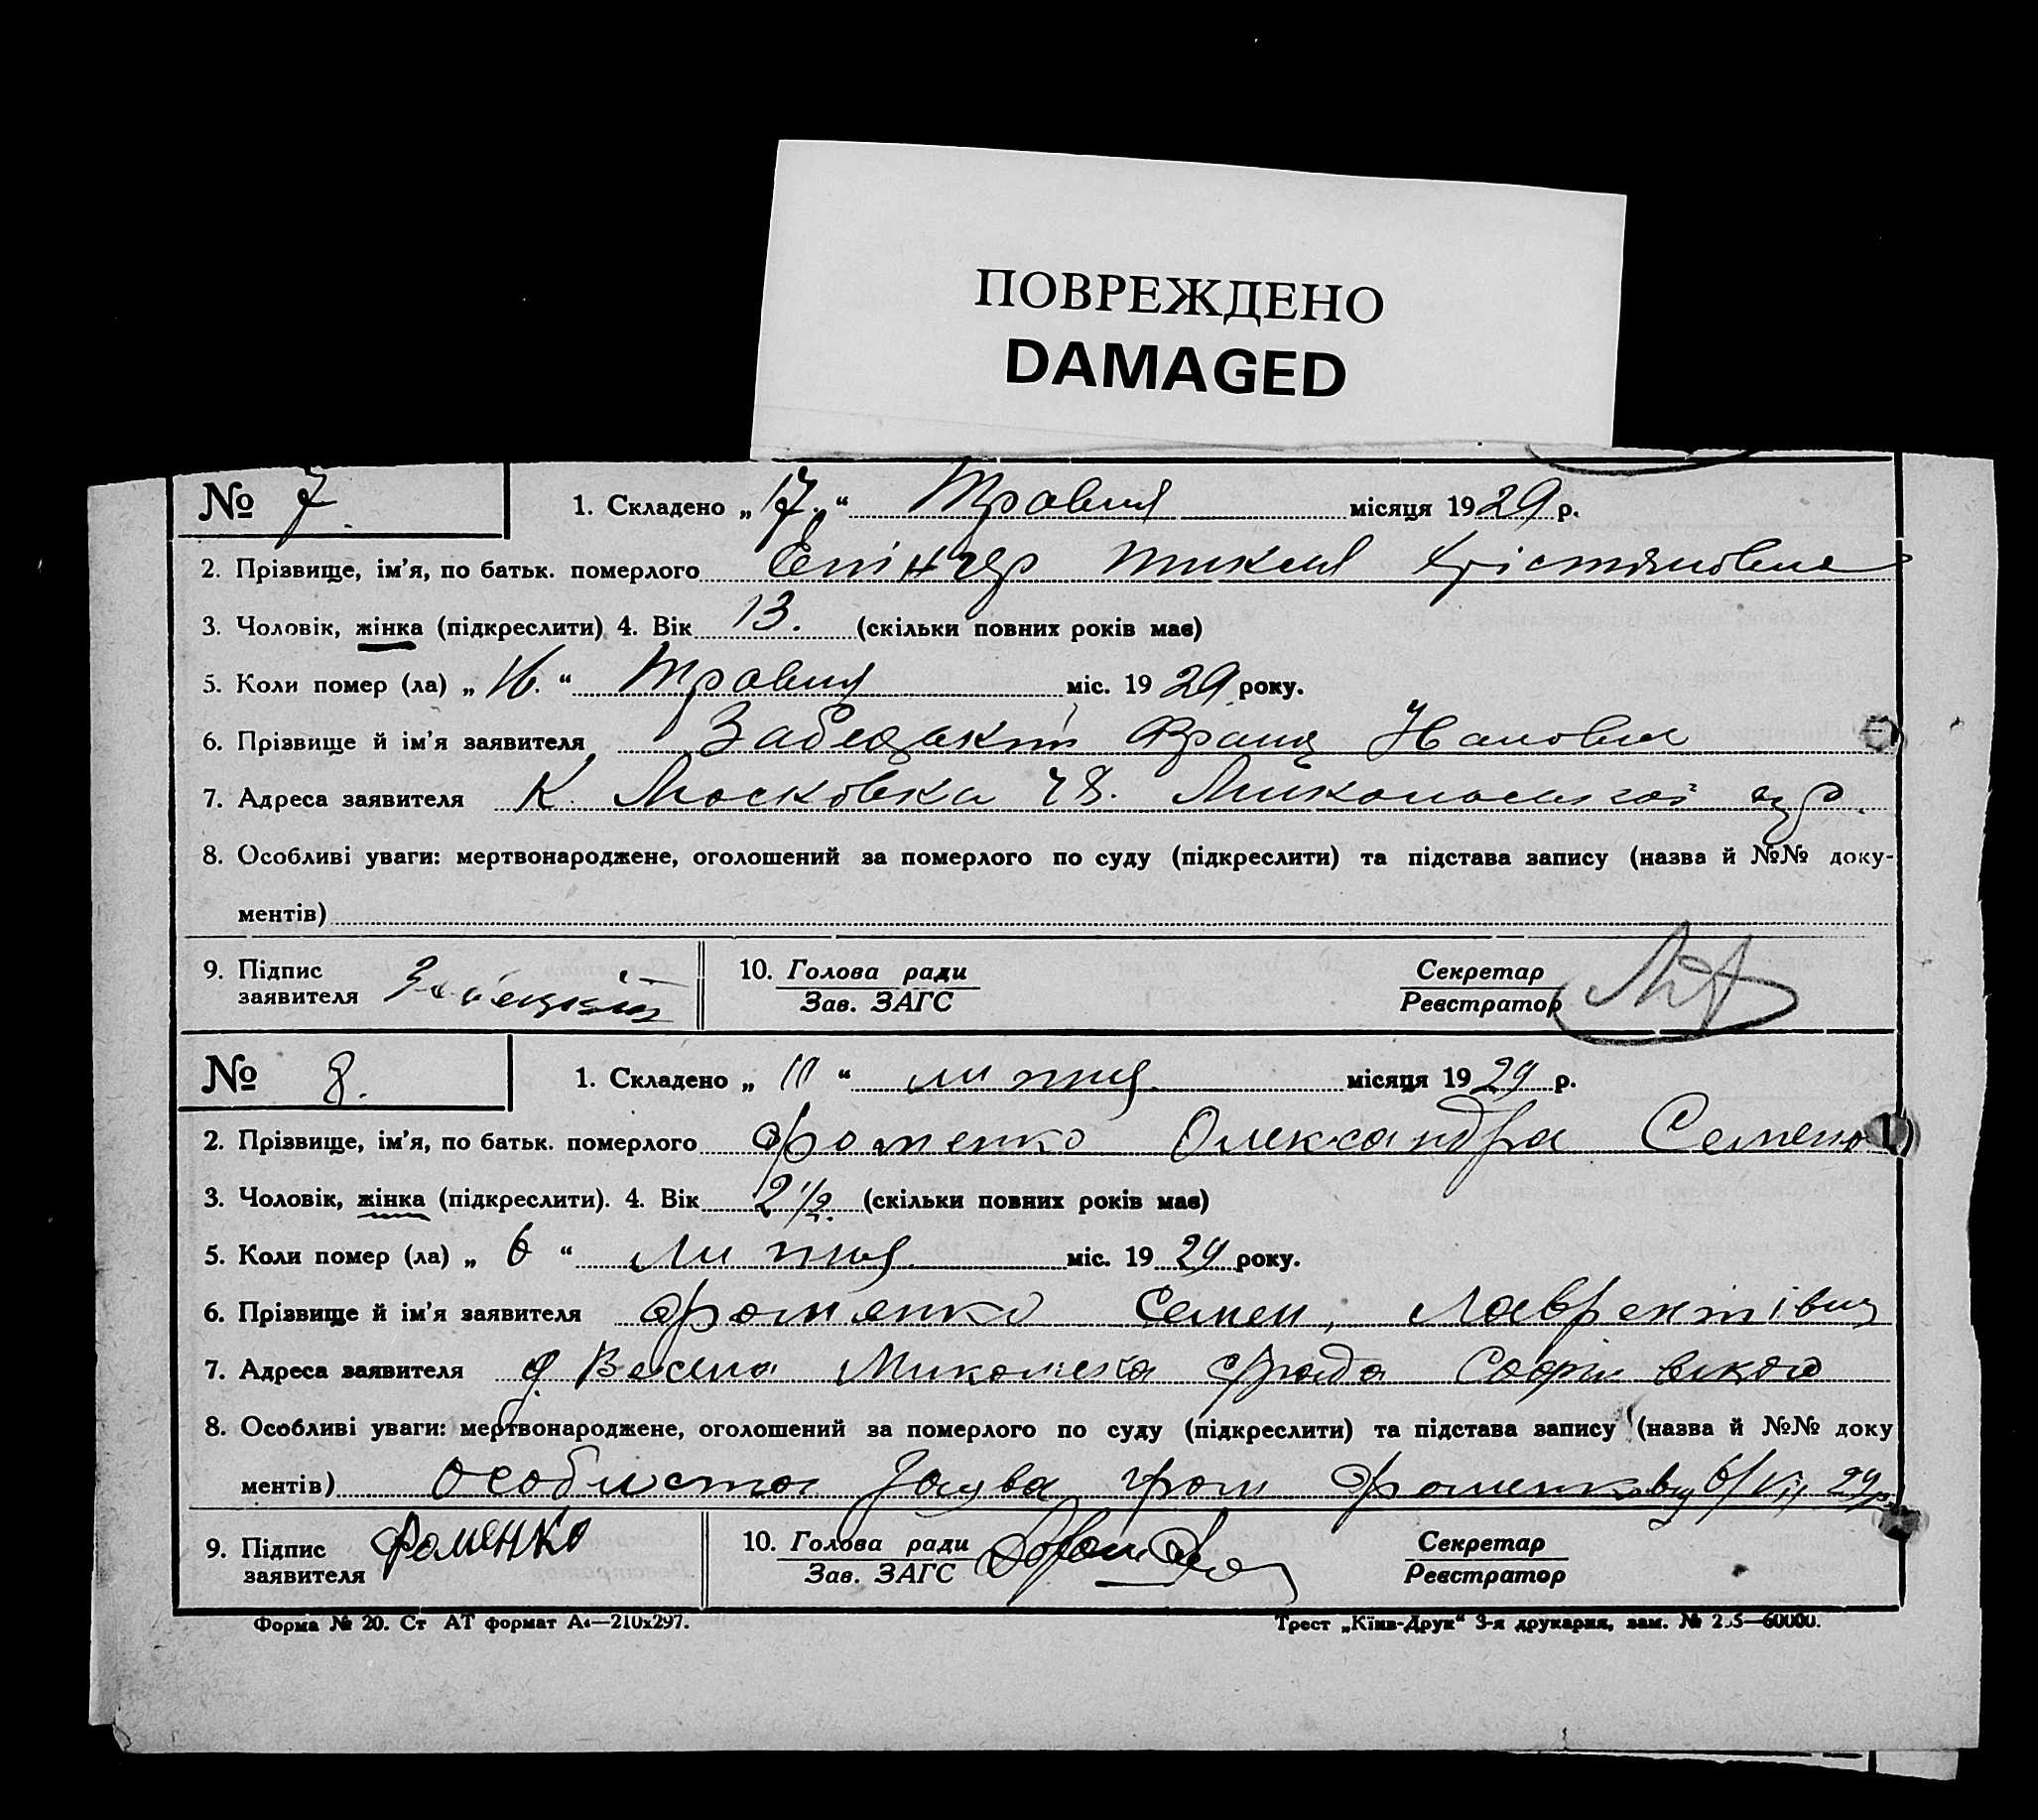 ПОВРЕЖДЕНО
DAMAGED
№ 7.
1. Складено „17.“ Травня місяця 1929 р.
2. Прізвище, ім'я, по батьк. померлого Епінгер Текля Хрістяновна
3. Чоловік, жінка (підкреслити) 4. Вік 13. (скільки повних років має)
5. Коли помер (ла) „16.“ Травня міс. 1929 року.
6. Прізвище й ім'я заявителя Забецький Франц
7. Адреса заявителя К. Московка 48.
8. Особливі уваги: мертвонароджене, оголошений за померлого по суду (підкреслити) та підстава запису (назва й №№ доку-
ментів)
9. Підпис заявителя Забецький
10. Голова ради
Зав. ЗАГС
Секретар
Реєстратор
№ 8.
1. Складено „10“ липня місяця 1929 р.
2. Прізвище, ім'я, по батьк. померлого Фоменко Олександра Семено
3. Чоловік, жінка (підкреслити). 4. Вік 2 1/2. (скільки повних років має)
5. Коли помер (ла) „6“ Липня міс. 1929 року.
6. Прізвище й ім'я заявителя Фоменко Семен, Лаврентівич
7. Адреса заявителя Весела
8. Особливі уваги: мертвонароджене, оголошений за померлого по суду (підкреслити) та підстава запису (назва й №№ доку
ментів) особиста Заява гром Фоменка 6/VII 29р.
9. Підпис заявителя Фоменко
10. Голова ради
Зав. ЗАГС
Секретар
Реєстратор
Форма № 20. Ст АТ формат А4—210x297.
Трест „Київ-Друк“ 3-я друкарня, зам. № 2 5—60000.